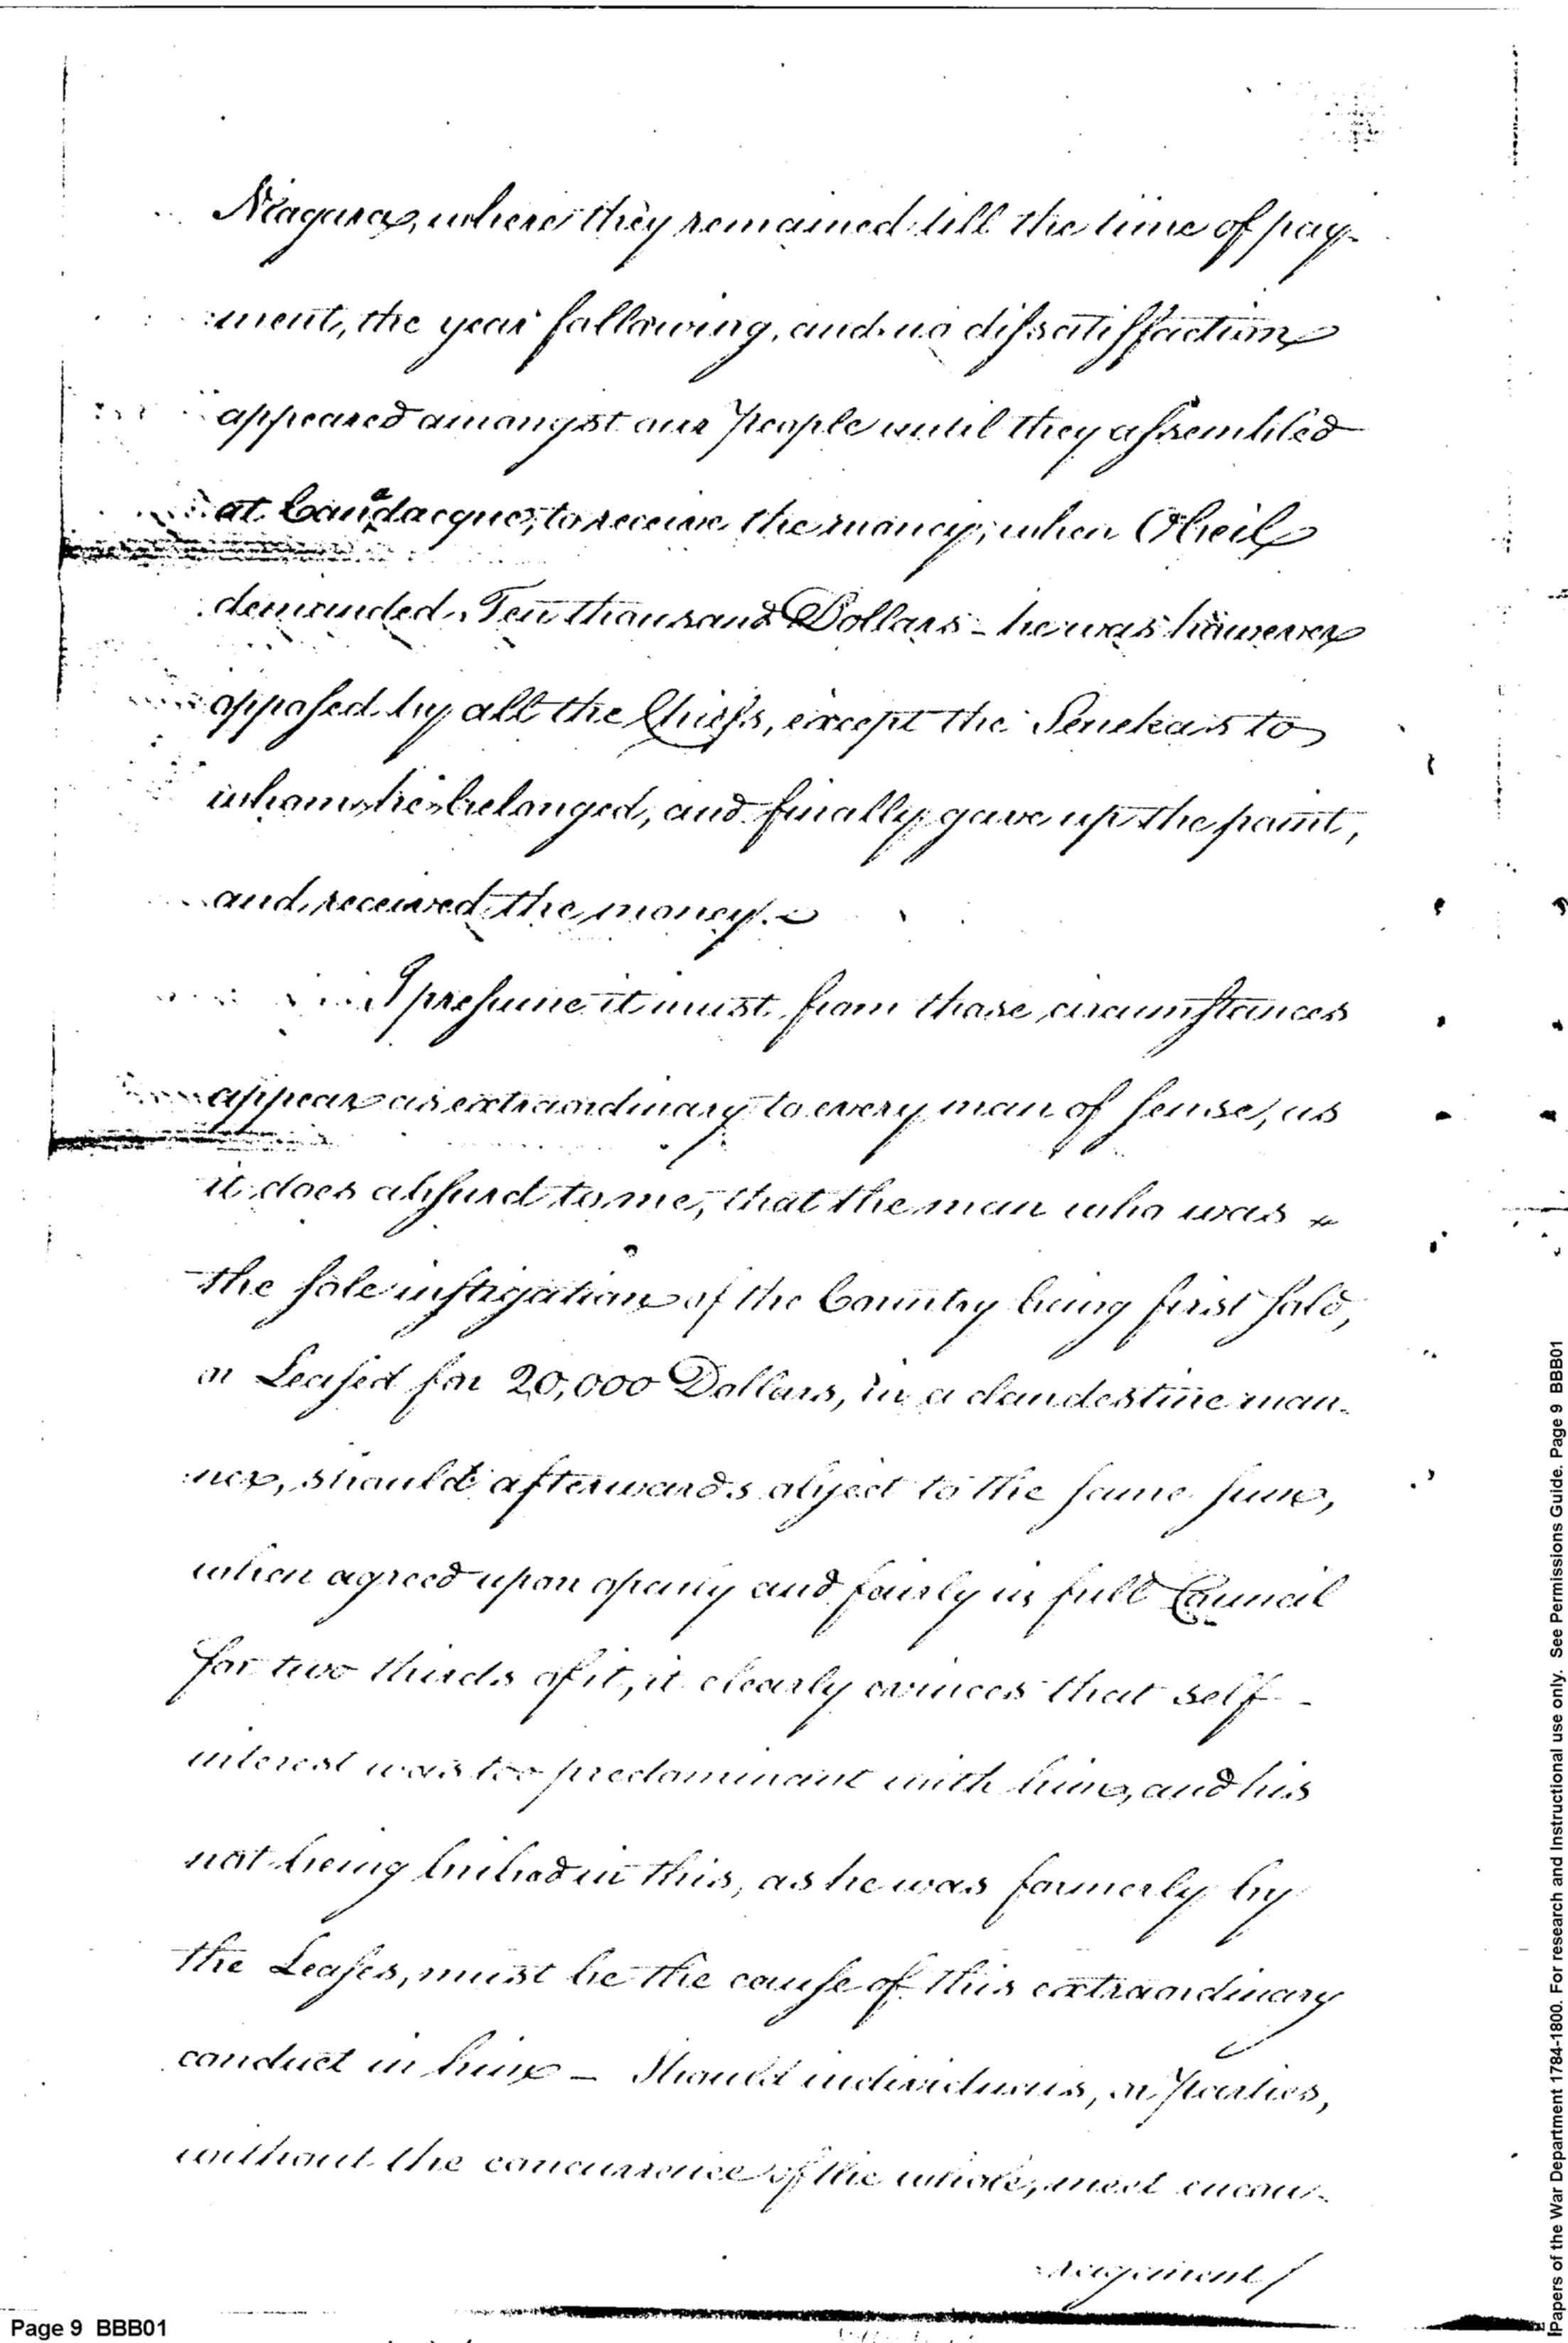 Niagara, where they remained till the time of pay-
:ment, the year following, and no dissatisfaction
appeared amongst our People until they assembled
at Canadacque, to receive the money, when Obeil
demanded Ten thousand Dollars - he was however
opposed by all the Chiefs, except the Senekas to
whom he belonged, and finally gave up the point,
and received the money. -
I presume it must from those circumstances
appear as extraordinary to every man of sense, as
it does absurd to me, that the man who was
the sole instigation of the Country being first sold,
or Leased for 20,000 Dollars, in a clandestine man-
:ner, should afterwards object to the same sum,
when agreed upon openly and fairly in full Council
for two thirds of it, it clearly evinces that self -
interest was too predominant with him, and his
not being bribed in this, as he was formerly by
the Leases, must be the cause of this extraordinary
conduct in him - Should individuals, or Parties,
without the concurrence of the whole, meet encou-
:ragement/
Page 9 BBB01
Papers of the War Department 1784-1800. For research and Instructional use only. See Permissions Guide. Page 9 BBB01